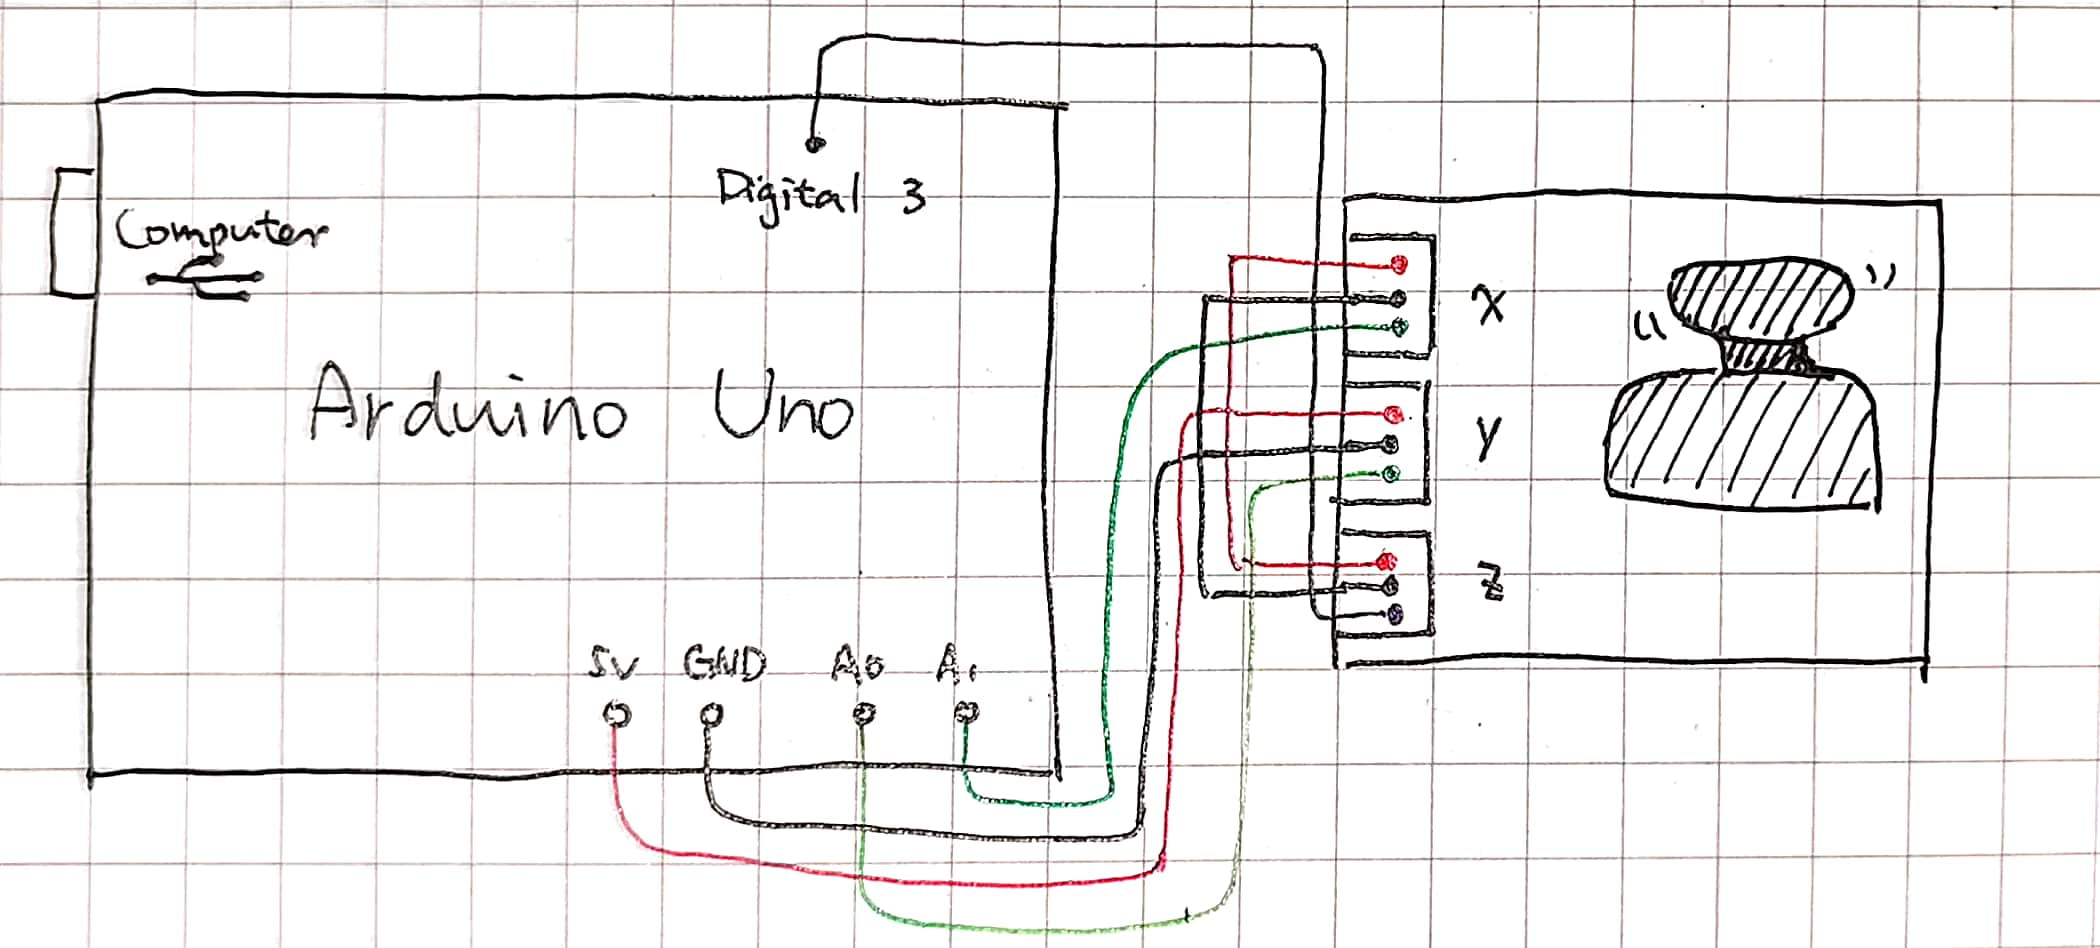 Digital 3
Computer
Arduino Uno
X
y
z
5V GND A0 A1